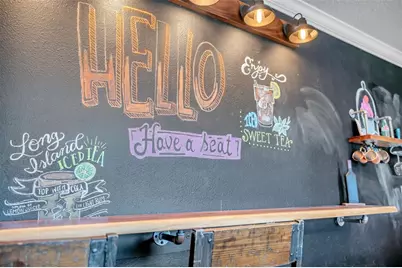 HELLO
Enjoy
SWEET TEA
Have a Seat!
Long
Island
ICED TEA